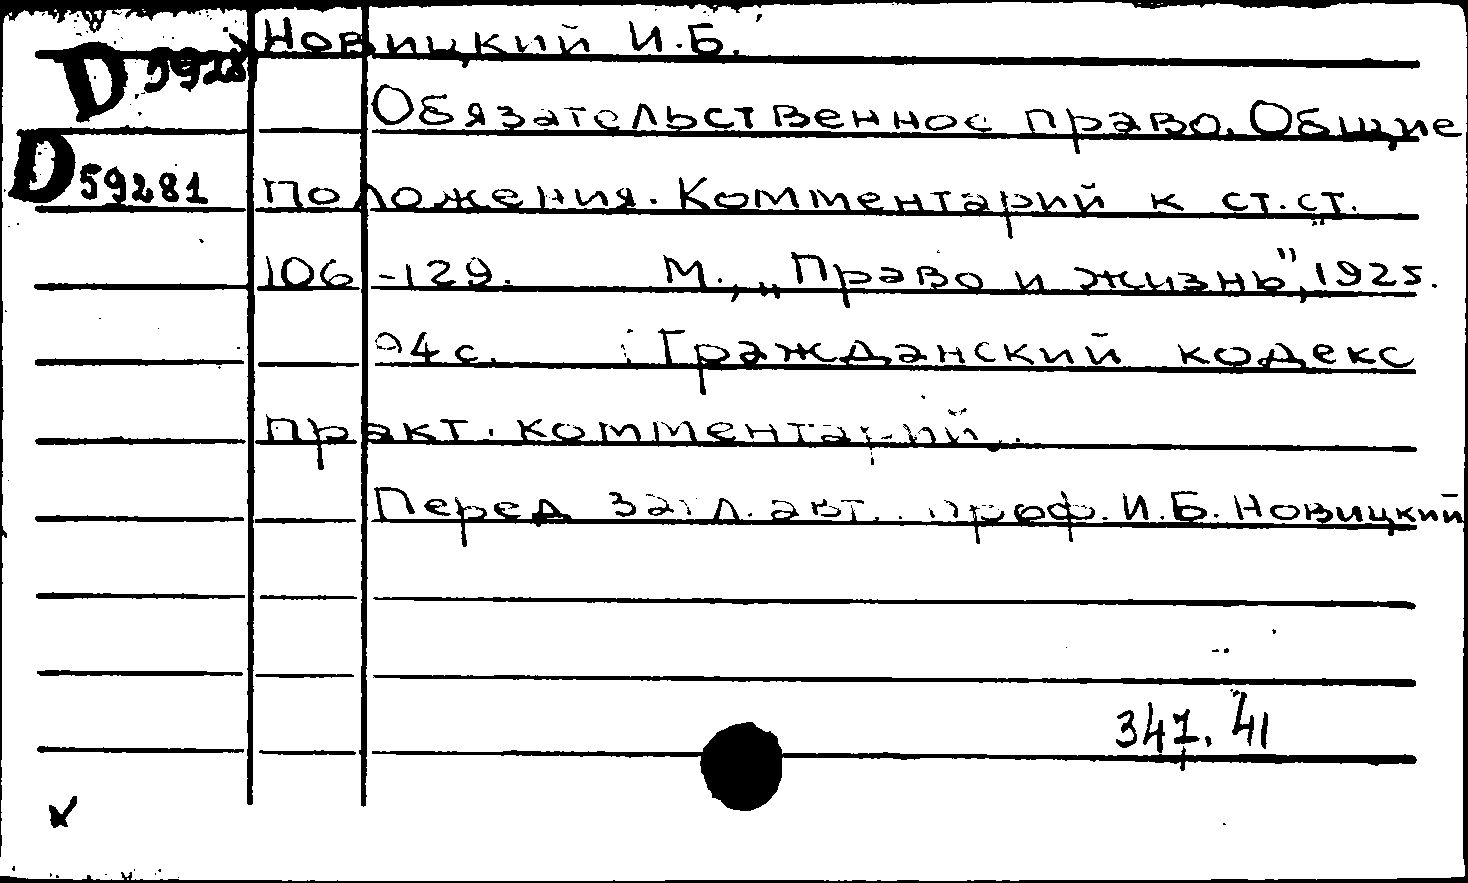 Новицкий И.Б.
D 5928
Обязательственное право. Общие
D 59281
положения. Комментарий к ст.ст.
106-129. М., „Право и жизнь", 1925.
94 с. Гражданский кодекс
практ. комментарий.
Перед загл. авт.: проф. И.Б. Новицкий
347.41